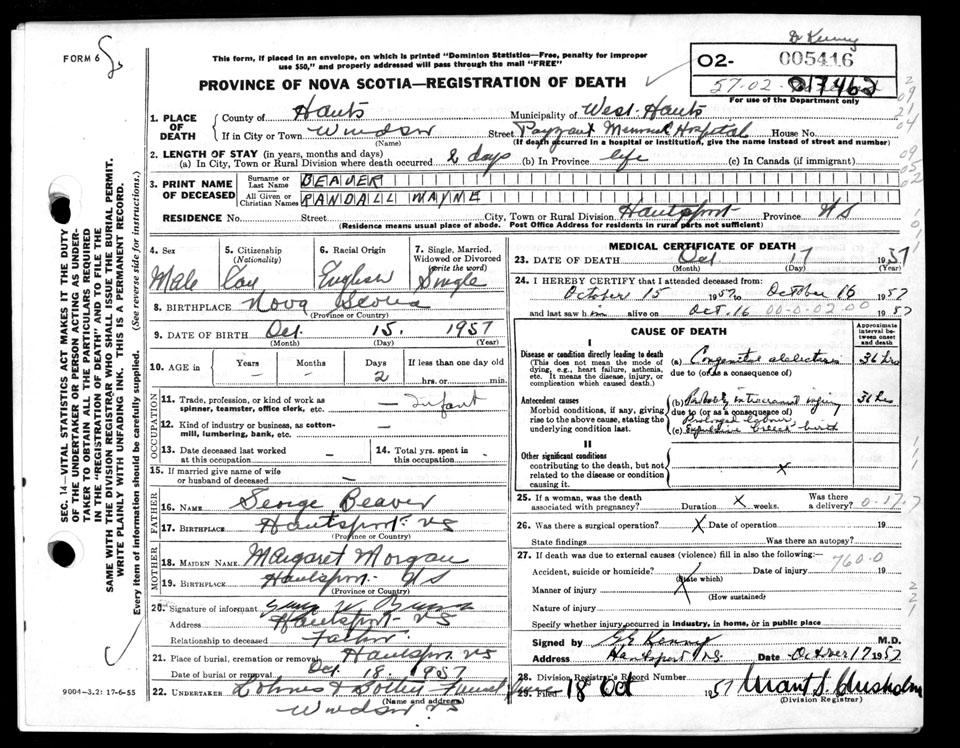 FORM 6
Dr Kenny
This form, if placed in an envelope, on which is printed "Dominion Statistics—Free, penalty for improper
use $50," and properly addressed will pass through the mail "FREE"
02- 005416
PROVINCE OF NOVA SCOTIA—REGISTRATION OF DEATH
57-02- 017462
For use of the Department only
1. PLACE OF DEATH
County of Hants Municipality of West-Hants
If in City or Town Windsor Street Payzant Memorial Hospital House No.
(Name) (If death occurred in a hospital or institution, give the name instead of street and number)
2. LENGTH OF STAY (in years, months and days)
(a) In City, Town or Rural Division where death occurred 2 days (b) In Province life (c) In Canada (if immigrant)
3. PRINT NAME OF DECEASED
Surname or Last Name BEAVER
All Given or Christian Names RANDALL WAYNE
RESIDENCE No. Street City, Town or Rural Division Hantsport Province NS
(Residence means usual place of abode. Post Office Address for residents in rural parts not sufficient)
4. Sex Male
5. Citizenship (Nationality) Can
6. Racial Origin English
7. Single, Married, Widowed or Divorced (write the word) Single
8. BIRTHPLACE Nova Scotia
(Province or Country)
9. DATE OF BIRTH Oct. 15. 1957
(Month) (Day) (Year)
10. AGE in Years – Months – Days 2 If less than one day old hrs. or min.
OCCUPATION
11. Trade, profession, or kind of work as spinner, teamster, office clerk, etc. — Infant
12. Kind of industry or business, as cotton-mill, lumbering, bank, etc. —
13. Date deceased last worked at this occupation —
14. Total yrs. spent in this occupation —
15. If married give name of wife or husband of deceased —
FATHER
16. NAME George Beaver
17. BIRTHPLACE Hantsport NS
(Province or Country)
MOTHER
18. MAIDEN NAME Margaret Morgan
19. BIRTHPLACE Hantsport NS
(Province or Country)
20. Signature of informant
Address Hantsport NS
Relationship to deceased Father
21. Place of burial, cremation or removal Hantsport NS
Date of burial or removal Oct. 18 1957
22. UNDERTAKER
(Name and address)
Windsor NS
9004-3.2: 17-6-55
MEDICAL CERTIFICATE OF DEATH
23. DATE OF DEATH Oct 17 1957
(Month) (Day) (Year)
24. I HEREBY CERTIFY that I attended deceased from:
October 15 1957 to October 16 1957
and last saw him alive on Oct. 16 00-0-02-00 1957
CAUSE OF DEATH
Approximate interval between onset and death
I
Disease or condition directly leading to death
(This does not mean the mode of dying, e.g., heart failure, asthenia, etc. It means the disease, injury, or complication which caused death.)
(a) Congenital atelectasis 36 hrs
due to (or as a consequence of)
Antecedent causes
Morbid conditions, if any, giving rise to the above cause, stating the underlying condition last.
(b) Probably intracranial injury 36 hrs
due to (or as a consequence of)
Prolonged labour
(c) breech birth
II
Other significant conditions
contributing to the death, but not related to the disease or condition causing it. x
25. If a woman, was the death associated with pregnancy? Duration x weeks. Was there a delivery?
26. Was there a surgical operation? X Date of operation 19
State findings Was there an autopsy?
27. If death was due to external causes (violence) fill in also the following:— 760-0
Accident, suicide or homicide? Date of injury 19
(State which)
Manner of injury
(How sustained)
Nature of injury
Specify whether injury occurred in industry, in home, or in public place
Signed by G E Kenny M.D.
Address Hantsport N.S. Date October 17 1957
28. Division Registrar's Record Number
29. Filed 18 Oct 1957 Grant S. Chisholm
(Division Registrar)
SEC. 14—VITAL STATISTICS ACT MAKES IT THE DUTY
OF THE UNDERTAKER OR PERSON ACTING AS UNDER-
TAKER TO OBTAIN ALL THE PARTICULARS REQUIRED
IN THE "REGISTRATION OF DEATH" AND TO FILE THE
SAME WITH THE DIVISION REGISTRAR WHO SHALL ISSUE THE BURIAL PERMIT.
WRITE PLAINLY WITH UNFADING INK. THIS IS A PERMANENT RECORD.
Every item of information should be carefully supplied. (See reverse side for instructions.)